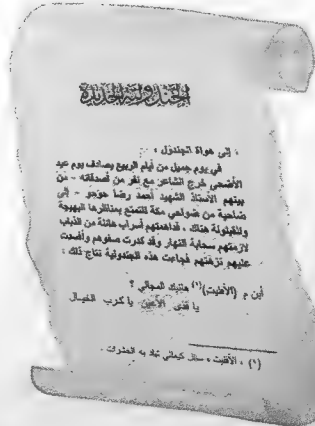 الجندولية الجديدة
« إلى هواة الجندول »
في يوم جميل من أيام الربيع يصادف يوم عيد
الأضحى خرج الشاعر مع نفر من أصدقائه - من
بينهم الأستاذ الشهيد أحمد رضا حوحو - إلى
ضاحية من ضواحي مكة للتمتع بمناظرها البهيجة
والقيلولة هناك ، فداهمتهم أسراب هائلة من الذباب
لازمتهم سحابة النهار وقد كدرت صفوهم وأفسدت
عليهم نزهتهم فجاءت هذه الجندولية نتاج ذلك :
أين م (الأفليت)(١) هاتيك المجالي ؟
يا قذى الأعين يا كرب الخيال
(١) « الأفليت » سائل كيمائي تباد به الحشرات .